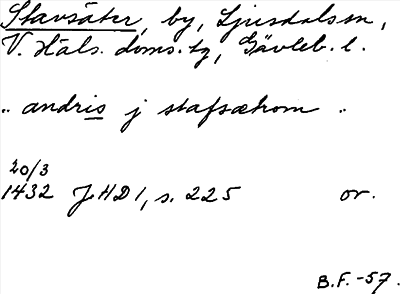 Stavsäter, by, Ljusdals sn,
V. Häls. doms.tg, Gävleb. l.
" andris j stafsætrom "
20/3
1432 JHD 1, s. 225 or.
B.F. -57.